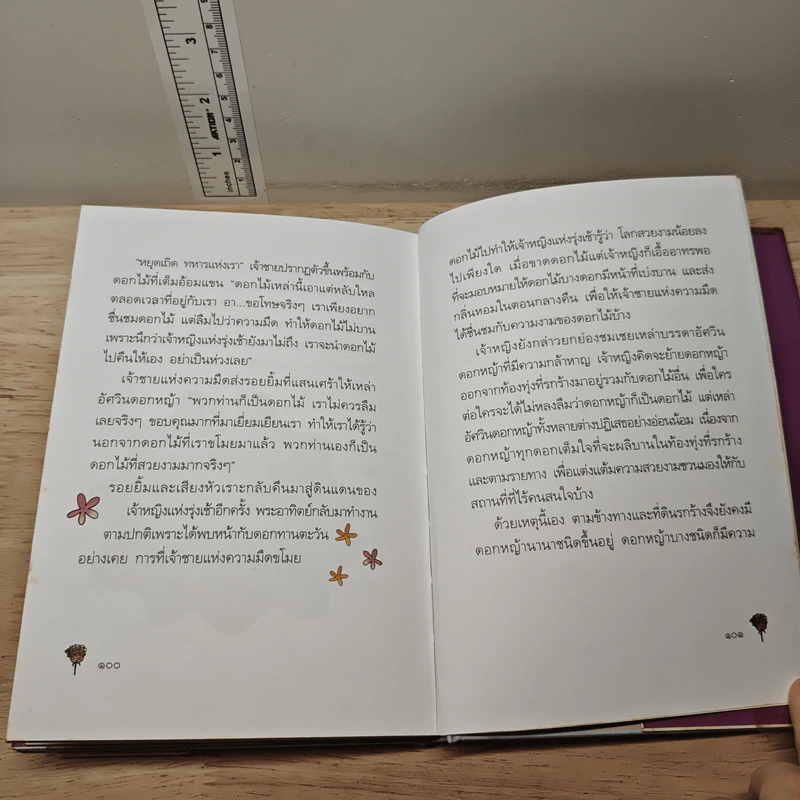 inches
1
2
3
1
2
3
4
5
6
7
8
9
AKTION
"หยุดเถิด ทหารแห่งเรา" เจ้าชายปรากฏตัวขึ้นพร้อมกับ
ดอกไม้ที่เต็มอ้อมแขน "ดอกไม้เหล่านี้เอาแต่หลับใหล
ตลอดเวลาที่อยู่กับเรา อา...ขอโทษจริงๆ เราเพียงอยาก
ชื่นชมดอกไม้ แต่ลืมไปว่าความมืด ทำให้ดอกไม้ไม่บาน
เพราะนึกว่าเจ้าหญิงแห่งรุ่งเช้ายังมาไม่ถึง เราจะนำดอกไม้
ไปคืนให้เอง อย่าเป็นห่วงเลย"
เจ้าชายแห่งความมืดส่งรอยยิ้มที่แสนเศร้าให้เหล่า
อัศวินดอกหญ้า "พวกท่านก็เป็นดอกไม้ เราไม่ควรลืม
เลยจริงๆ ขอบคุณมากที่มาเยี่ยมเยียนเรา ทำให้เราได้รู้ว่า
นอกจากดอกไม้ที่เราขโมยมาแล้ว พวกท่านเองก็เป็น
ดอกไม้ที่สวยงามมากจริงๆ"
รอยยิ้มและเสียงหัวเราะกลับคืนมาสู่ดินแดนของ
เจ้าหญิงแห่งรุ่งเช้าอีกครั้ง พระอาทิตย์กลับมาทำงาน
ตามปกติเพราะได้พบหน้ากับดอกทานตะวัน
อย่างเคย การที่เจ้าชายแห่งความมืดขโมย
๑๐๐
ดอกไม้ไปทำให้เจ้าหญิงแห่งรุ่งเช้ารู้ว่า โลกสวยงามน้อยลง
ไปเพียงใด เมื่อขาดดอกไม้แต่เจ้าหญิงก็เอื้ออาทรพอ
ที่จะมอบหมายให้ดอกไม้บางดอกมีหน้าที่เบ่งบาน และส่ง
กลิ่นหอมในตอนกลางคืน เพื่อให้เจ้าชายแห่งความมืด
ได้ชื่นชมกับความงามของดอกไม้บ้าง
เจ้าหญิงยังกล่าวยกย่องชมเชยเหล่าบรรดาอัศวิน
ดอกหญ้าที่มีความกล้าหาญ เจ้าหญิงคิดจะย้ายดอกหญ้า
ออกจากท้องทุ่งที่รกร้างมาอยู่รวมกับดอกไม้อื่น เพื่อใคร
ต่อใครจะได้ไม่หลงลืมว่าดอกหญ้าก็เป็นดอกไม้ แต่เหล่า
อัศวินดอกหญ้าทั้งหลายต่างปฏิเสธอย่างอ่อนน้อม เนื่องจาก
ดอกหญ้าทุกดอกเต็มใจที่จะผลิบานในท้องทุ่งที่รกร้าง
และตามรายทาง เพื่อแต่งแต้มความสวยงามชวนมองให้กับ
สถานที่ที่ไร้คนสนใจบ้าง
ด้วยเหตุนี้เอง ตามข้างทางและที่ดินรกร้างจึงยังคงมี
ดอกหญ้านานาชนิดขึ้นอยู่ ดอกหญ้าบางชนิดก็มีความ
๑๐๑